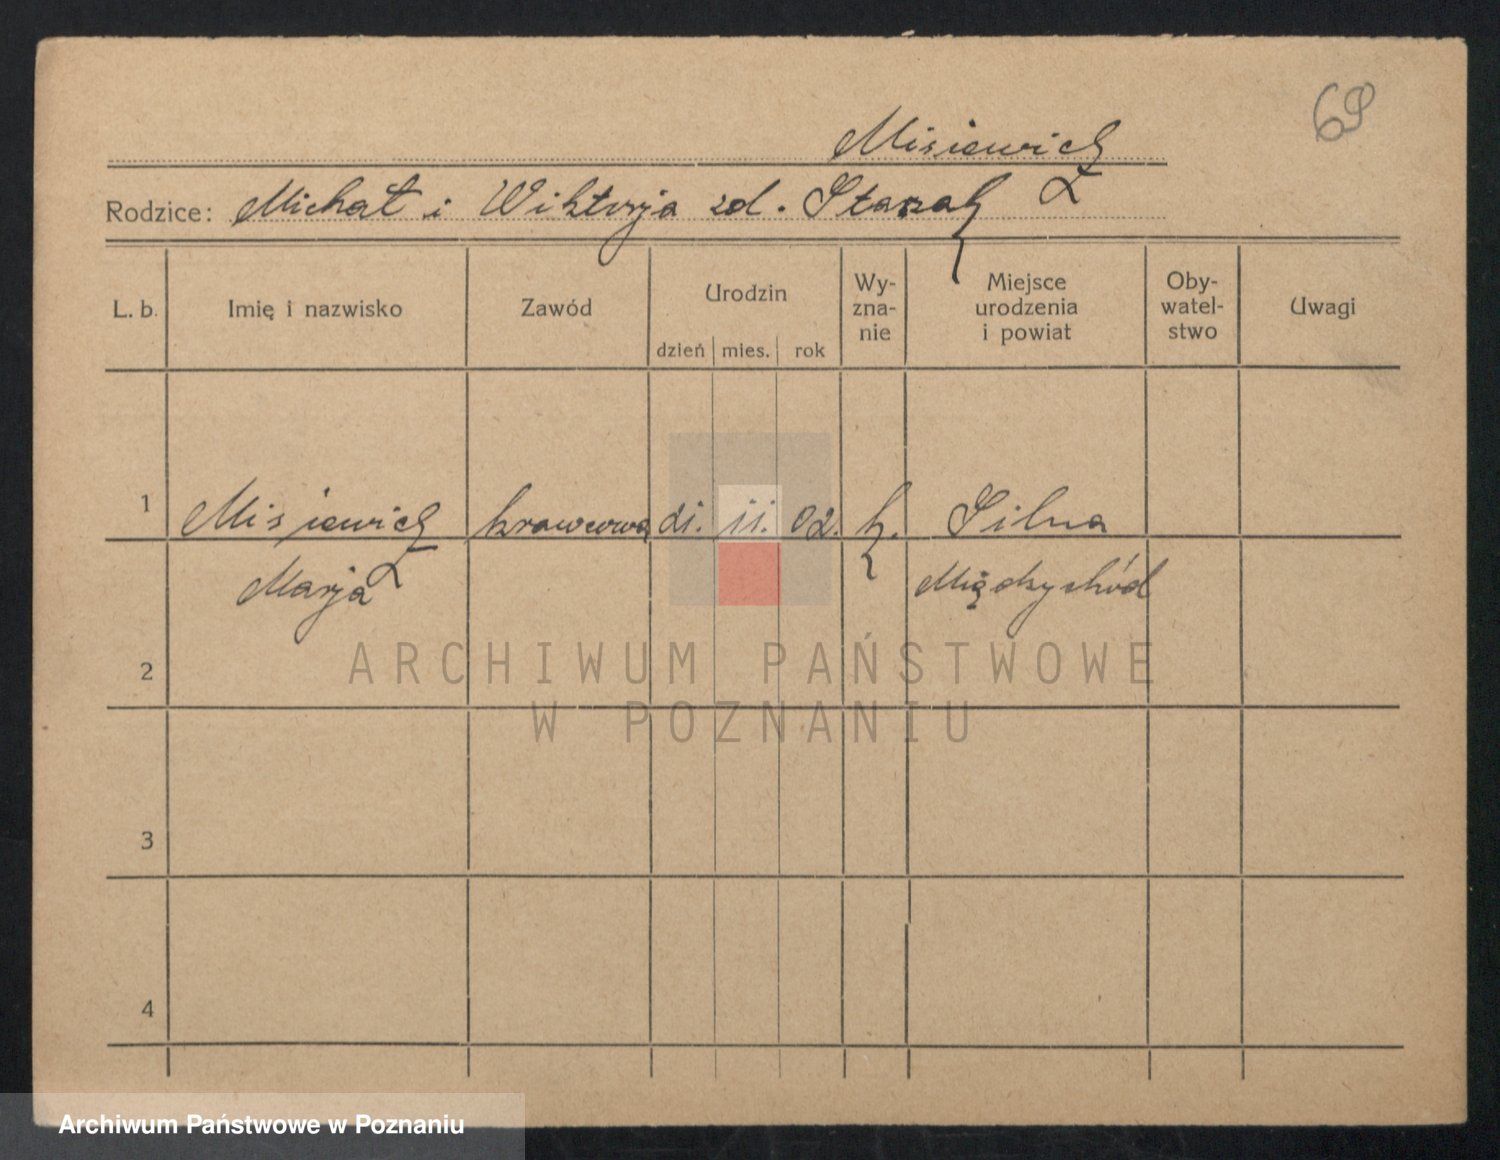 69
Misiewicz
Rodzice: Michał i Wiktorja zd. Starak
L. b. Imię i nazwisko Zawód Urodzin dzień mies. rok Wy-zna-nie Miejsce urodzenia i powiat Oby-watel-stwo Uwagi
1 Misiewicz krawcowa 21. 11. 02. k. Silna
Marja Międzychód
2
ARCHIWUM PAŃSTWOWE
W POZNANIU
3
4
Archiwum Państwowe w Poznaniu